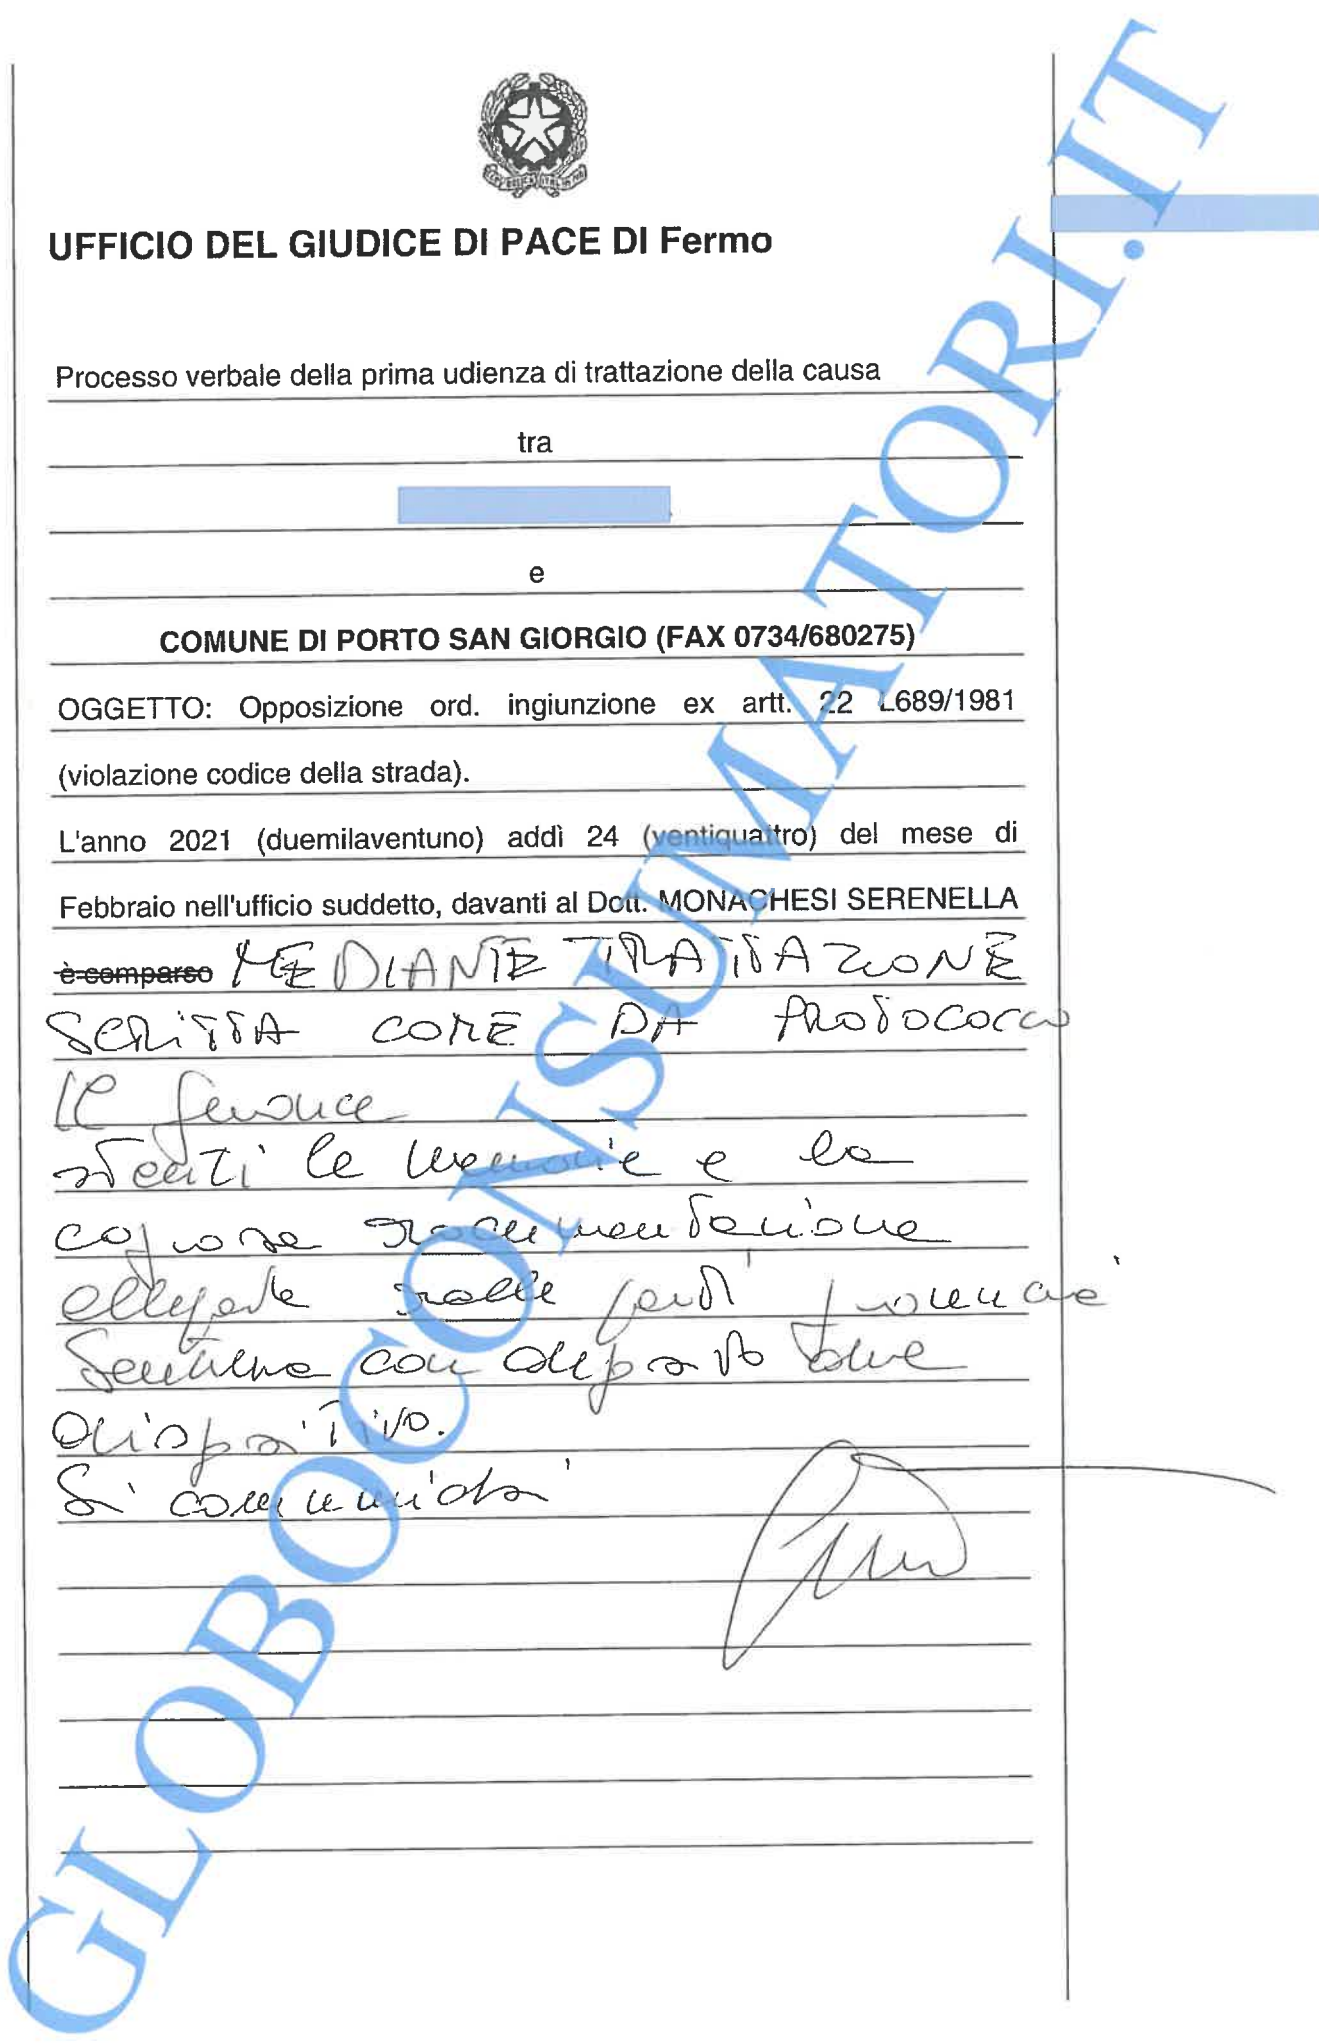 UFFICIO DEL GIUDICE DI PACE DI Fermo
Processo verbale della prima udienza di trattazione della causa
tra
e
COMUNE DI PORTO SAN GIORGIO (FAX 0734/680275)
OGGETTO: Opposizione ord. ingiunzione ex artt. 22 L689/1981
(violazione codice della strada).
L'anno 2021 (duemilaventuno) addì 24 (ventiquattro) del mese di
Febbraio nell'ufficio suddetto, davanti al Dott. MONACHESI SERENELLA
è comparso MEDIANTE TRATTAZIONE
SCRITTA COME DA PROTOCOLLO
Il Giudice
le memorie e la
copiosa documentazione
allegata dalle parti
sentenza con
dispositivo.
Si comunichi
GLOBOCONSUMATORI.IT